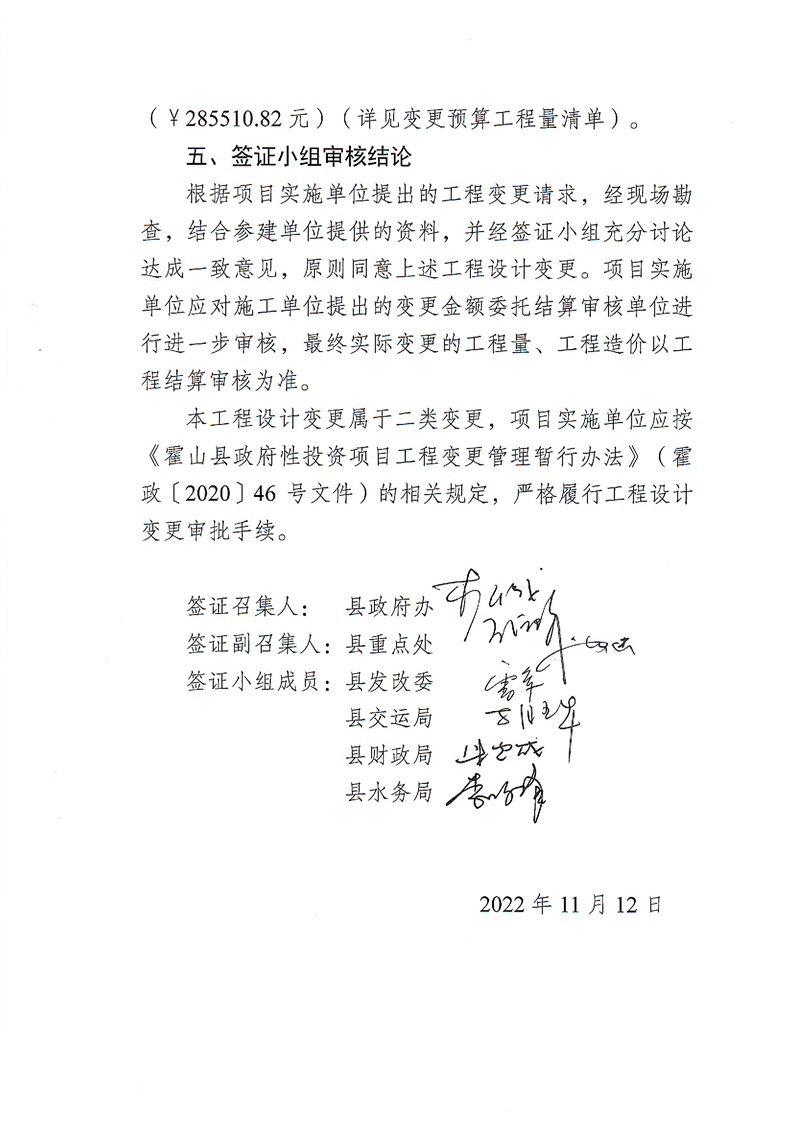 （￥285510.82 元）（详见变更预算工程量清单）。
五、签证小组审核结论
根据项目实施单位提出的工程变更请求，经现场勘
查，结合参建单位提供的资料，并经签证小组充分讨论
达成一致意见，原则同意上述工程设计变更。项目实施
单位应对施工单位提出的变更金额委托结算审核单位进
行进一步审核，最终实际变更的工程量、工程造价以工
程结算审核为准。
本工程设计变更属于二类变更，项目实施单位应按
《霍山县政府性投资项目工程变更管理暂行办法》（霍
政〔2020〕46 号文件）的相关规定，严格履行工程设计
变更审批手续。
签证召集人： 县政府办
签证副召集人：县重点处
签证小组成员：县发改委
县交运局
县财政局
县水务局
2022 年 11 月 12 日